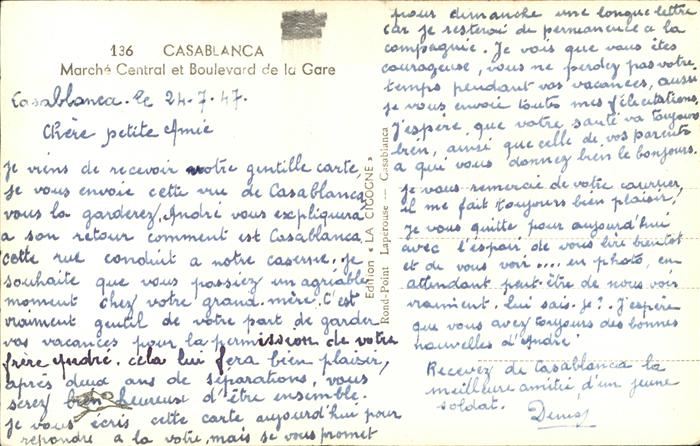 136 CASABLANCA
Marché Central et Boulevard de la Gare
Casablanca. le 24-7-47.
Chère petite Amie
Je viens de recevoir votre gentille carte,
je vous envoie cette vue de Casablanca
vous la garderez, André vous expliquera
a son retour comment est Casablanca
cette rue conduit a notre caserne. je
souhaite que vous passiez un agréable
moment chez votre grand-mère. C'est
vraiment gentil de votre part de garder
vos vacances pour la permission de votre
frère André. cela lui fera bien plaisir,
après deux ans de séparations, vous
serez bien heureux d'être ensemble.
je vous écris cette carte aujourd'hui pour
répondre a la votre, mais je vous promet
Edition "LA CIGOGNE"
Rond-Point Laperouse — Casablanca
pour dimanche une longue lettre
car je resterai de permanence a la
compagnie. Je vois que vous êtes
courageuse, vous ne perdez pas votre
temps pendant vos vacances, aussi
je vous envoie toutes mes félicitations,
j'espère que votre santé va toujours
bien, ainsi que celle de vos parents
a qui vous donnez bien le bonjours.
je vous remercie de votre courrier,
il me fait toujours bien plaisir,
je vous quitte pour aujourd'hui
avec l'espoir de vous lire bientot
et de vous voir.... en photo, en
attendant peut-être de nous voir
vraiment. lui sais-je? j'espère
que vous avez toujours des bonnes
nouvelles d'André
Recevez de Casablanca la
meilleure amitié d'un jeune
soldat. Denis